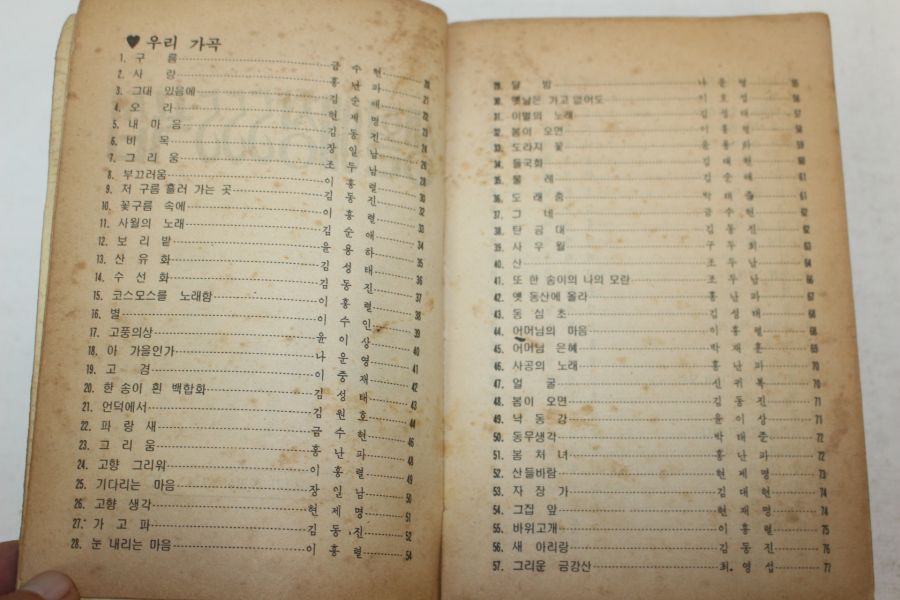 ♥ 우리 가곡
1. 구 름 금 수 현 20
2. 사 랑 홍 난 파 21
3. 그대 있음에 김 순 애 22
4. 오 라 현 제 명 23
5. 내 마 음 김 동 진 24
6. 비 목 장 일 남 26
7. 그 리 움 조 두 남 28
8. 부끄러움 이 흥 렬 30
9. 저 구름 흘러 가는 곳 김 동 진 32
10. 꽃구름 속에 이 흥 렬 33
11. 사월의 노래 김 순 애 34
12. 보 리 밭 윤 용 하 35
13. 산 유 화 김 성 태 36
14. 수 선 화 김 동 진 37
15. 코스모스를 노래함 이 흥 렬 38
16. 별 이 수 인 39
17. 고풍의상 윤 이 상 40
18. 아 가을인가 나 운 영 41
19. 고 경 이 중 재 42
20. 한 송이 흰 백합화 김 성 태 43
21. 언덕에서 김 원 호 44
22. 파 랑 새 금 수 현 46
23. 그 리 움 홍 난 파 48
24. 고향 그리워 이 흥 렬 49
25. 기다리는 마음 장 일 남 50
26. 고향 생각 현 제 명 51
27. 가 고 파 김 동 진 52
28. 눈 내리는 마음 이 흥 렬 54
29. 달 밤 나 운 영 55
30. 옛날은 가고 없어도 이 호 섭 56
31. 이별의 노래 김 성 태 57
32. 봄이 오면 이 흥 렬 58
33. 도라지 꽃 윤 용 하 59
34. 들국화 김 대 현 60
35. 물 레 김 순 애 61
36. 도 래 춤 박 태 61
37. 그 네 금 수 현 62
38. 탄 금 대 김 동 진 62
39. 사 우 월 구 두 회 63
40. 산 조 두 남 64
41. 또 한 송이의 나의 모란 조 두 남 66
42. 옛 동산에 올라 홍 난 파 67
43. 동 심 초 김 성 태 68
44. 어머님의 마음 이 흥 렬 68
45. 어머님 은혜 박 재 훈 69
46. 사공의 노래 홍 난 파 70
47. 얼 굴 신 귀 복 70
48. 봄이 오면 김 동 진 71
49. 낙 동 강 윤 이 상 71
50. 동무생각 박 태 준 72
51. 봄 처 녀 홍 난 파 72
52. 산들바람 현 제 명 73
53. 자 장 가 김 대 현 74
54. 그집 앞 현 재 명 74
55. 바위고개 이 흥 렬 75
56. 새 아리랑 김 동 진 76
57. 그리운 금강산 최 영 섭 77